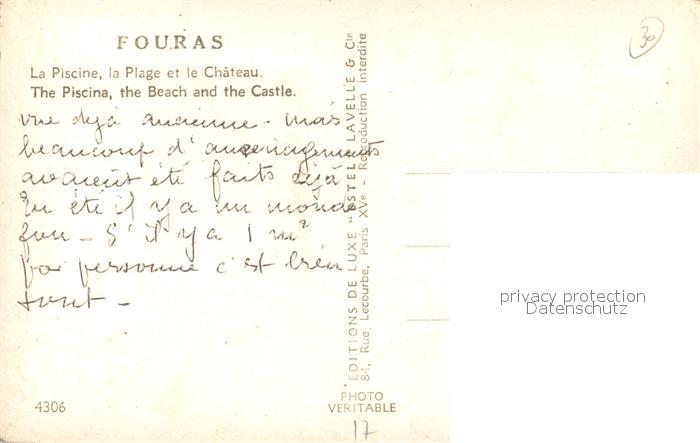 FOURAS
La Piscine, la Plage et le Château.
The Piscina, the Beach and the Castle.
vue dejà ancienne - mais
beaucoup d'aménagements
avaient été faits déjà
En été il y a un monde
fou - S'il y a 1 m²
par personne c'est bien
tout -
4306
EDITIONS DE LUXE "ESTEL" LAVELLE & Cie
84, Rue Lecourbe, Paris XVe - Reproduction interdite
PHOTO
VERITABLE
17
30
privacy protection
Datenschutz